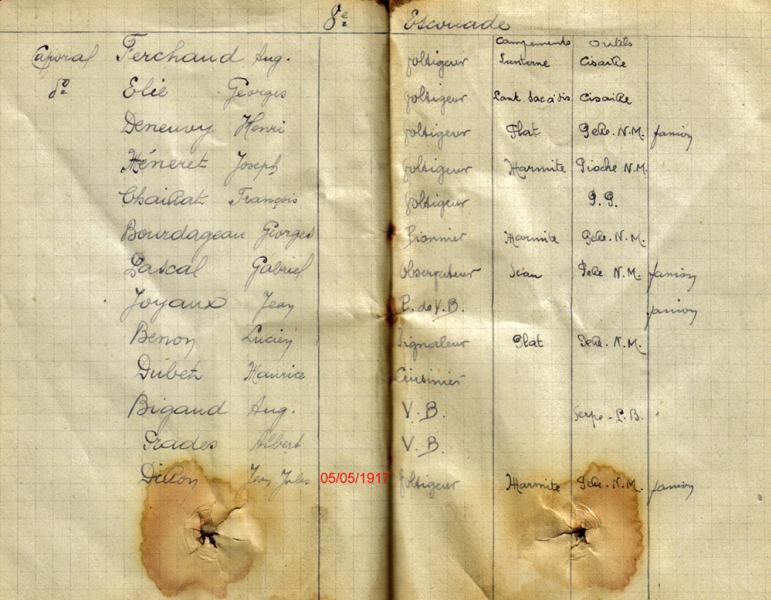 8e Escouade
Campements Outils
Caporal Ferchaud Aug. Voltigeur Lanterne Cisaille
do Elie Georges Voltigeur Lant. Cisaille
Deneuvy Henri Voltigeur Plat Pelle. N.M. fanion
Méneret Joseph Voltigeur Marmite Pioche N.M.
François Voltigeur P.P.
Bourdageau Georges Pionnier Marmite Pelle. N.M.
Pascal Gabriel Observateur Seau Pelle N.M. fanion
Joyaux Jean P. de V.B. fanion
Benon Lucien Signaleur Plat Pelle. N.M.
Maurice Cuisinier
Bigaud Aug. V.B. Serpe. P.B.
Prades Albert V.B.
Dillon Jean Jules 05/05/1917 Voltigeur Marmite Pelle. N.M. fanion